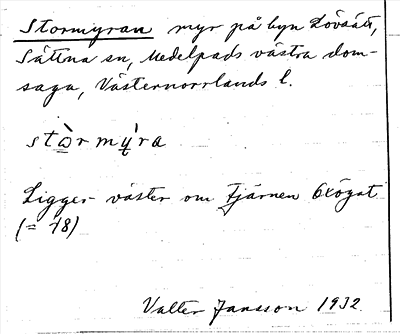 Stormyran myr på byn Lövåätt,
Sättna sn, Medelpads västra dom-
saga, Västernorrlands l.
stòrmỳ̢ra
Ligger väster om tjärnen Oxögat
(= 18)
Valter Jansson 1932.